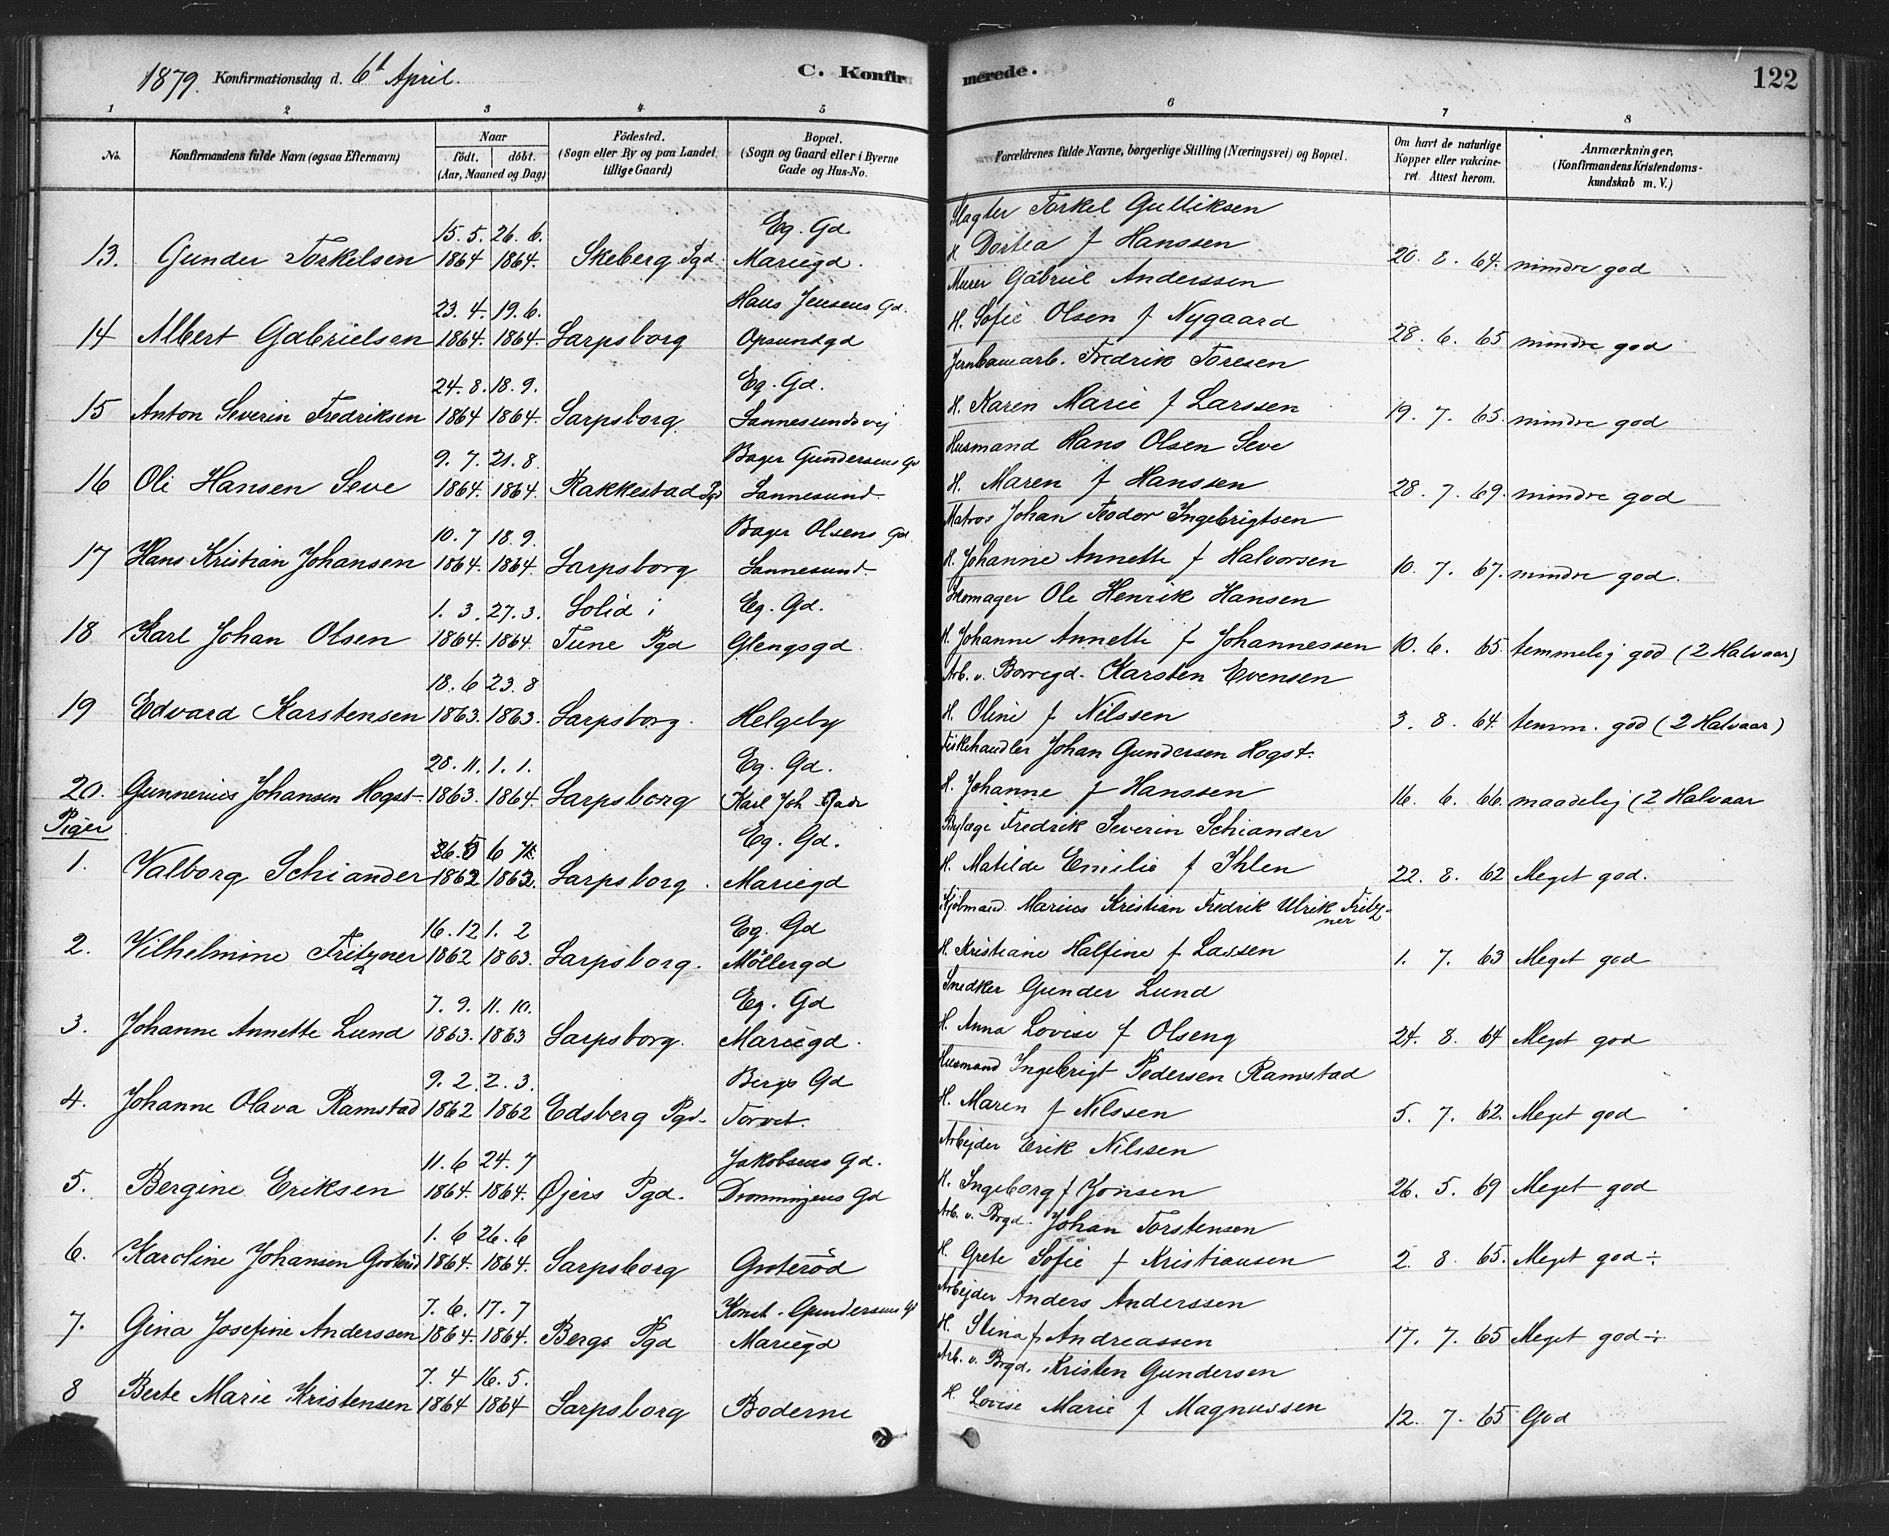 1879. Konfirmationsdag d. 6t April. C. Konfirmerede. 122
1 2 3 4 5 6 7 8
No. Konfirmandens fulde Navn (ogsaa Efternavn) Naar født. døbt. (Aar, Maaned og Dag) Fødested. (Sogn eller By og paa Landet tillige Gaard) Bopæl. (Sogn og Gaard eller i Byerne Gade og Hus-No. Forældrenes fulde Navne, borgerlige Stilling (Næringsvei) og Bopæl. Om havt de naturlige Kopper eller vakcineret. Attest herom. Anmærkninger, (Konfirmandens Kristendomskundskab m. V.)
15. 5. 26. 6. Eg. Gd Slagter Torkel Gulliksen
13. Gunder Torkelsen 1864 1864. Skeberg Pgd. Mariegd. H. Dortea f Hanssen 20. 8. 64. mindre god
23. 4. 19. 6. Hans Jensens Gd. Murer Gabriel Anderssen
14 Albert Gabrielsen 1864. 1864. Sarpsborg Opsundgd H. Sofie Olsen f Nygaard 28. 6. 65 mindre god
24. 8. 18. 9. Eg. Gd. Jernbanearb. Fredrik Toresen
15 Anton Severin Fredriksen 1864 1864. Sarpsborg. Sannesundsvej H. Karen Marie f Larssen 19. 7. 65. mindre god
9. 7. 21. 8. Bager Gundersens Gd Husmand Hans Olsen Seve
16 Ole Hansen Seve 1864. 1864. Rakkestad Pgd Sannesund H. Maren f Hanssen 28. 7. 69. mindre god
10. 7 18. 9. Bager Olsens Gd. Matros Johan Teodor Ingebrigtsen
17 Hans Kristian Johansen 1864. 1864. Sarpsborg Sannesund. H. Johanne Annette f Halvorsen 10. 7. 67. mindre god.
1. 3. 27. 3. Solid i Eg. Gd. Skomager Ole Henrik Hansen
18 Karl Johan Olsen 1864. 1864. Tune Pgd Glengsgd. H. Johanne Annette f Johannessen 10. 6. 65 temmelig god (2 Halvaar)
18. 6 23. 8 Arb. v. Borregd. Karsten Evensen
19 Edvard Karstensen 1863. 1863. Sarpsborg. Helgeby H. Oline f Nilssen 3. 8. 64. temm. god (2 Halvaar)
28. 11. 1. 1. Eg. Gd. Fiskehandler Johan Gundersen Hogst.
20. Gunnerius Johansen Hogst 1863. 1864 Sarpsborg Karl Joh. Gade H. Johanne f Hanssen 16. 6. 66. maadelig (2 Halvaar
Piger Eg. Gd. Fredrik Severin Schiander
1. Valborg Schiander 1862 1862. Sarpsborg. Mariegd H. Matilde Emilie f Ihlen 22. 8. 62 Meget god.
16. 12 1. 2 Eg. Gd Kjøbmand. Marius Kristian Fredrik Ulrik Fritzner
2. Vilhelmine Fritzner 1862 1863. Sarpsborg. Møllergd H. Kristiane Halfine f Lassen 1. 7. 63 Meget god
7. 9. 11. 10. Eg. Gd Snedker Gunder Lund
3. Johanne Annette Lund 1863. 1863 Sarpsborg. Mariegd. H. Anna Lovise f Olseng 24. 8. 64 Meget god
9. 2. 2. 3. Bergs Gd Husmand Ingebrigt Pedersen Ramstad
4. Johanne Olava Ramstad 1862 1862 Edsberg Pgd. Torvet. H. Maren f Nilssen 5. 7. 62. Meget god
11. 6 24. 7 Jakobsens Gd. Arbejder Erik Nilssen
5. Bergine Eriksen 1864. 1864. Øjers Pgd. Dronningens Gd H. Ingeborg f Jonsen 26. 5. 69 Meget god
1. 6 26. 6 Arb. v. Brgd. Johan Torstensen
6. Karoline Johansen Groterød 1864. 1864. Sarpsborg Groterød H. Grete Sofie f Kristiansen 2. 8. 65. Meget god ÷
7. 6. 17. 7 Konst. Gundersens Gd Arbejder Anders Anderssen
7. Gina Josefine Anderssen 1864. 1864. Bergs Pgd Mariegd H. Stina f Andreassen 17. 7. 65 Meget god ÷
7. 4 16. 5. Arb. v. Brgd. Kristen Gundersen
8 Berte Marie Kristensen 1864 1864 Sarpsborg Boderne H. Lovise Marie f Magnussen 12. 7. 65 God